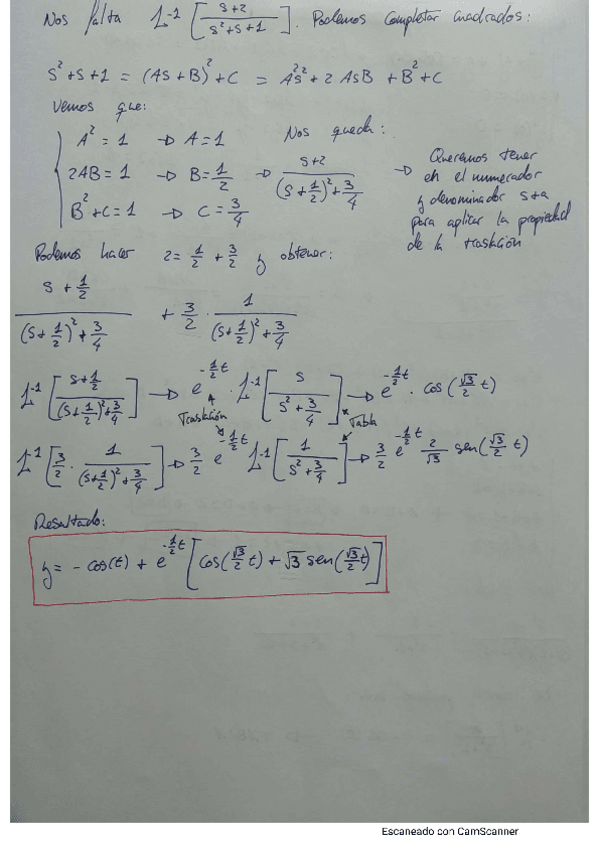 Nos falta L⁻¹ [ (s+2)/(s²+s+1) ]. Podemos completar cuadrados:
s²+s+1 = (As+B)²+C = A²s²+2AsB+B²+C
Vemos que:
A²=1 → A=1
2AB=1 → B=1/2
B²+C=1 → C=3/4
Nos queda:
→ (s+2)/((s+1/2)²+3/4)
→ Queremos tener
en el numerador
y denominador s+a
para aplicar la propiedad
de la traslación
Podemos hacer 2=1/2+3/2 y obtener:
(s+1/2)/((s+1/2)²+3/4) + 3/2 · 1/((s+1/2)²+3/4)
L⁻¹[(s+1/2)/((s+1/2)²+3/4)] → e^(-1/2 t) · L⁻¹[s/(s²+3/4)] → e^(-1/2 t) · cos(√3/2 t)
Traslación Tabla
L⁻¹[3/2 · 1/((s+1/2)²+3/4)] → 3/2 e^(-1/2 t) L⁻¹[1/(s²+3/4)] → 3/2 e^(-1/2 t) 2/√3 sen(√3/2 t)
Resultado:
y = -cos(t) + e^(-1/2 t) [cos(√3/2 t) + √3 sen(√3/2 t)]
Escaneado con CamScanner